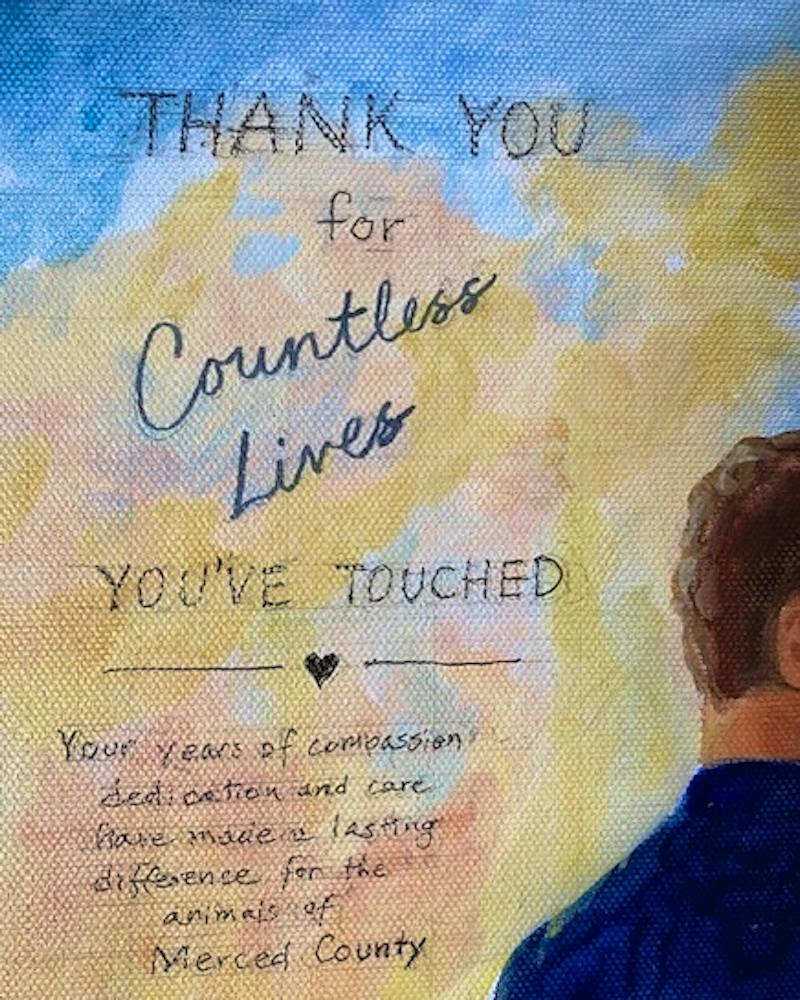 THANK YOU
for
Countless
Lives
YOU'VE TOUCHED
Your years of compassion
dedication and care
have made a lasting
difference for the
animals of
Merced County